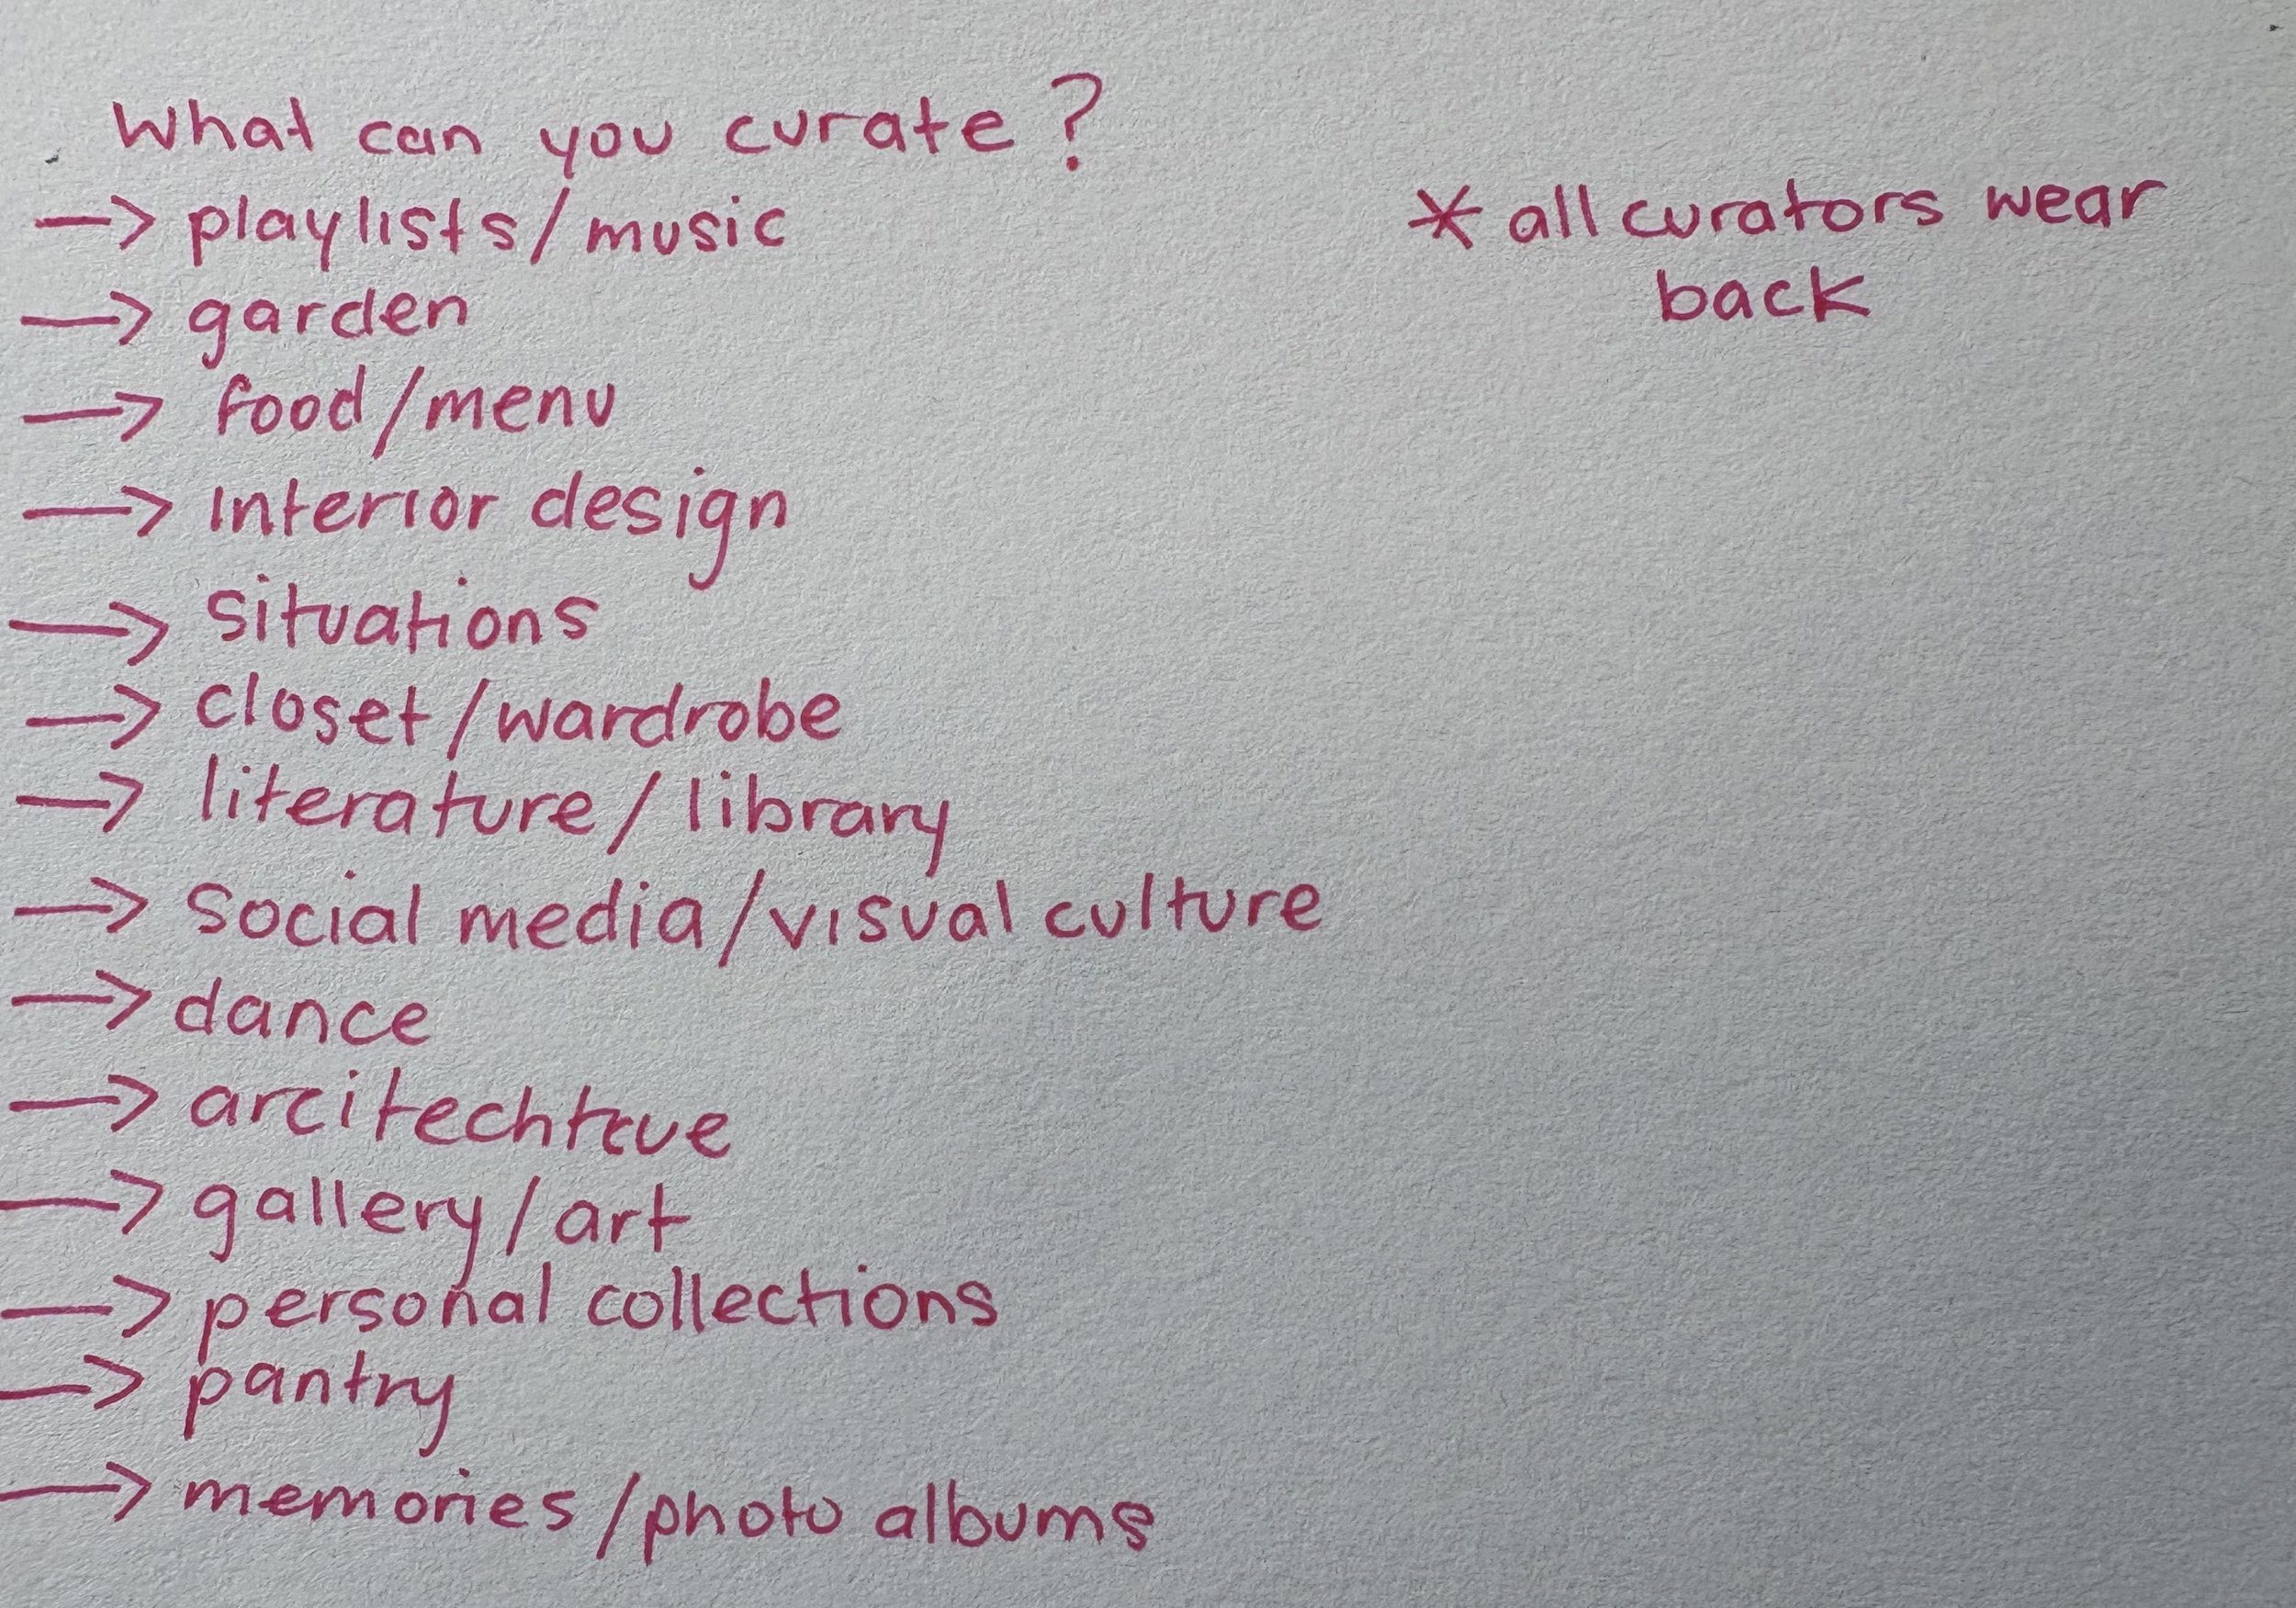 What can you curate?
→ playlists/music
→ garden
→ food/menu
→ Interior design
→ situations
→ closet/wardrobe
→ literature/library
→ social media/visual culture
→ dance
→ arcitechtrue
→ gallery/art
→ personal collections
→ pantry
→ memories/photo albums
* all curators wear
back